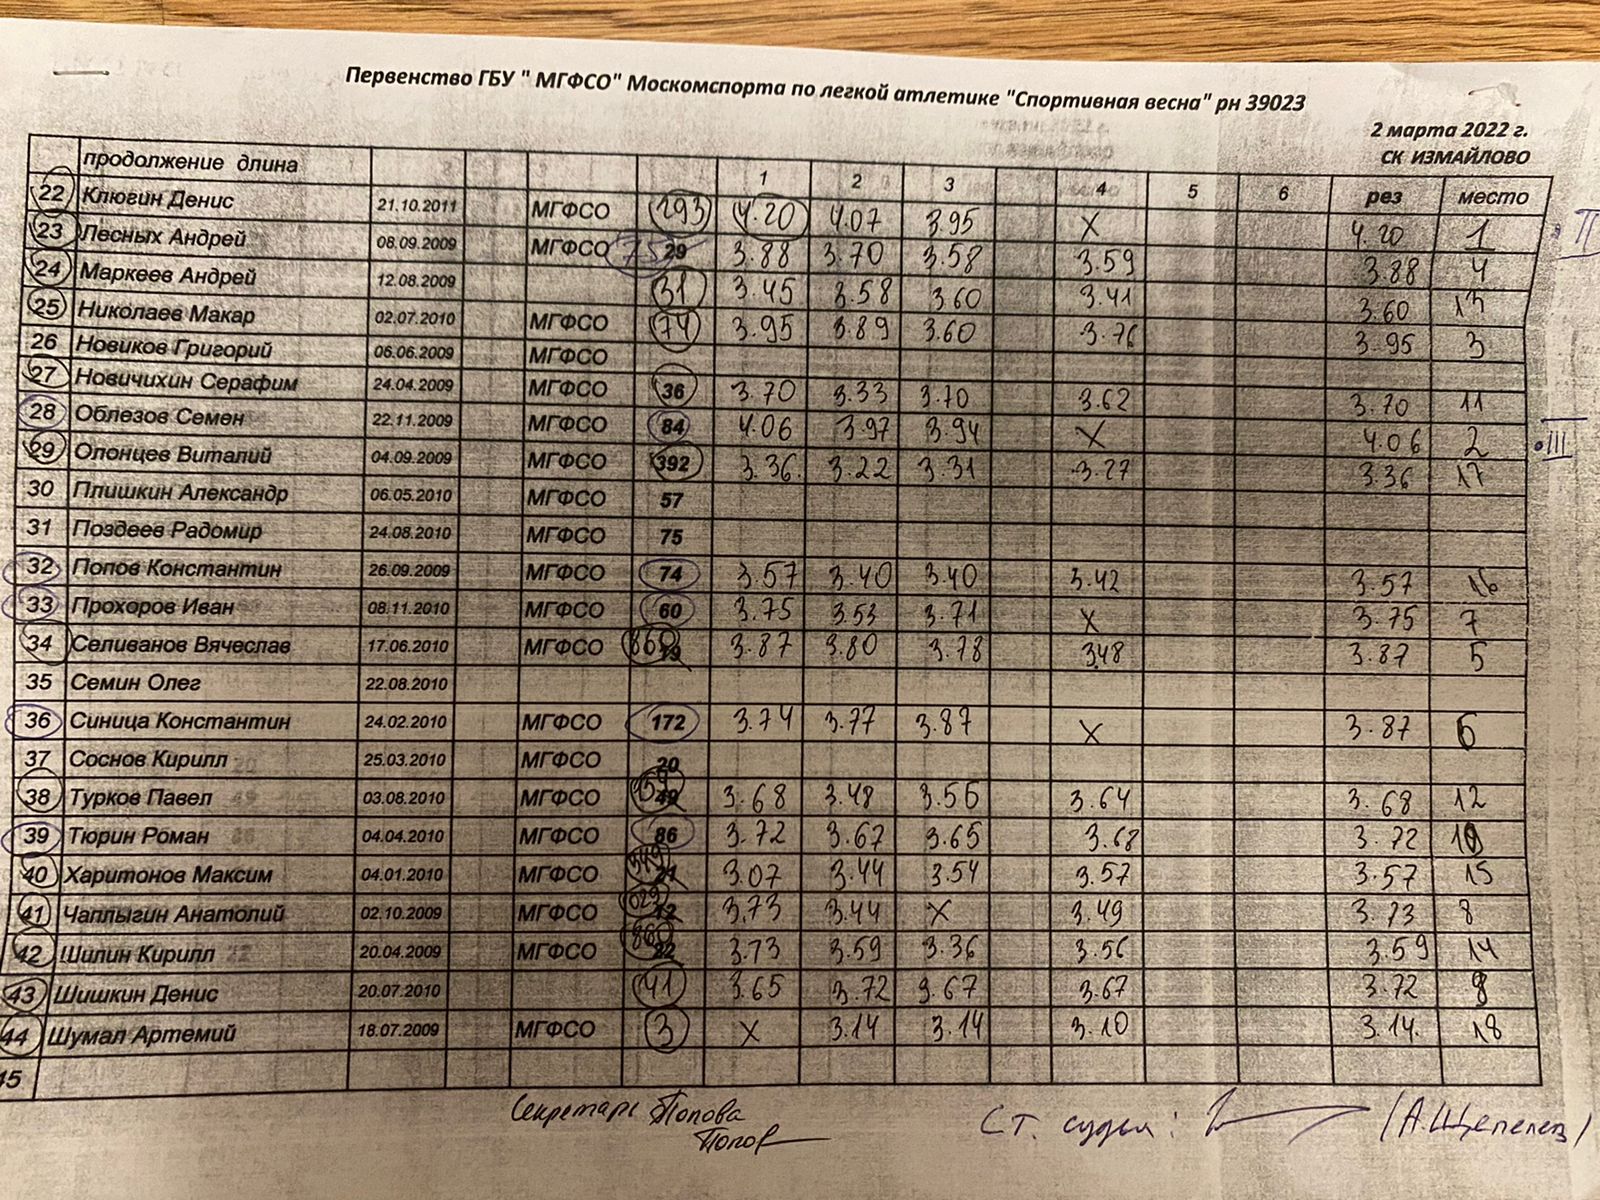 Первенство ГБУ " МГФСО" Москомспорта по легкой атлетике "Спортивная весна" рн 39023
2 марта 2022 г.
СК ИЗМАЙЛОВО
продолжение длина 1 2 3 4 5 6 рез место
22 Клюгин Денис 21.10.2011 МГФСО 293 4.20 4.07 3.95 X 4.20 1 II
23 Лесных Андрей 08.09.2009 МГФСО 75 29 3.88 3.70 3.58 3.59 3.88 4
24 Маркеев Андрей 12.08.2009 31 3.45 3.58 3.60 3.41 3.60 13
25 Николаев Макар 02.07.2010 МГФСО 74 3.95 3.89 3.60 3.76 3.95 3
26 Новиков Григорий 06.06.2009 МГФСО
27 Новичихин Серафим 24.04.2009 МГФСО 36 3.70 3.33 3.70 3.62 3.70 11
28 Облезов Семен 22.11.2009 МГФСО 84 4.06 3.97 3.94 X 4.06 2 III
29 Олонцев Виталий 04.09.2009 МГФСО 392 3.36. 3.22 3.31 3.27 3.36 17
30 Плишкин Александр 06.05.2010 МГФСО 57
31 Поздеев Радомир 24.08.2010 МГФСО 75
32 Попов Константин 26.09.2009 МГФСО 74 3.57 3.40 3.40 3.42 3.57 16
33 Прохоров Иван 08.11.2010 МГФСО 60 3.75 3.53 3.71 X 3.75 7
34 Селиванов Вячеслав 17.06.2010 МГФСО 3.87 3.80 3.78 348 3.87 5
35 Семин Олег 22.08.2010
36 Синица Константин 24.02.2010 МГФСО 172 3.74 3.77 3.87 X 3.87 6
37 Соснов Кирилл 25.03.2010 МГФСО 20
38 Турков Павел 03.08.2010 МГФСО 3.68 3.48 3.56 3.64 3.68 12
39 Тюрин Роман 04.04.2010 МГФСО 86 3.72 3.67 3.65 3.68 3.72 10
40 Харитонов Максим 04.01.2010 МГФСО 21 3.07 3.44 3.54 3.57 3.57 15
41 Чаплыгин Анатолий 02.10.2009 МГФСО 12 3.73 3.44 X 3.49 3.73 8
42 Шилин Кирилл 20.04.2009 МГФСО 860 22 3.73 3.59 3.36 3.56 3.59 14
43 Шишкин Денис 20.07.2010 41 3.65 3.72 3.67 3.67 3.72
44 Шумал Артемий 18.07.2009 МГФСО 3 X 3.14 3.14 3.10 3.14. 18
45
Секретарь Попова
Ст. судья: (А.Щепелев)